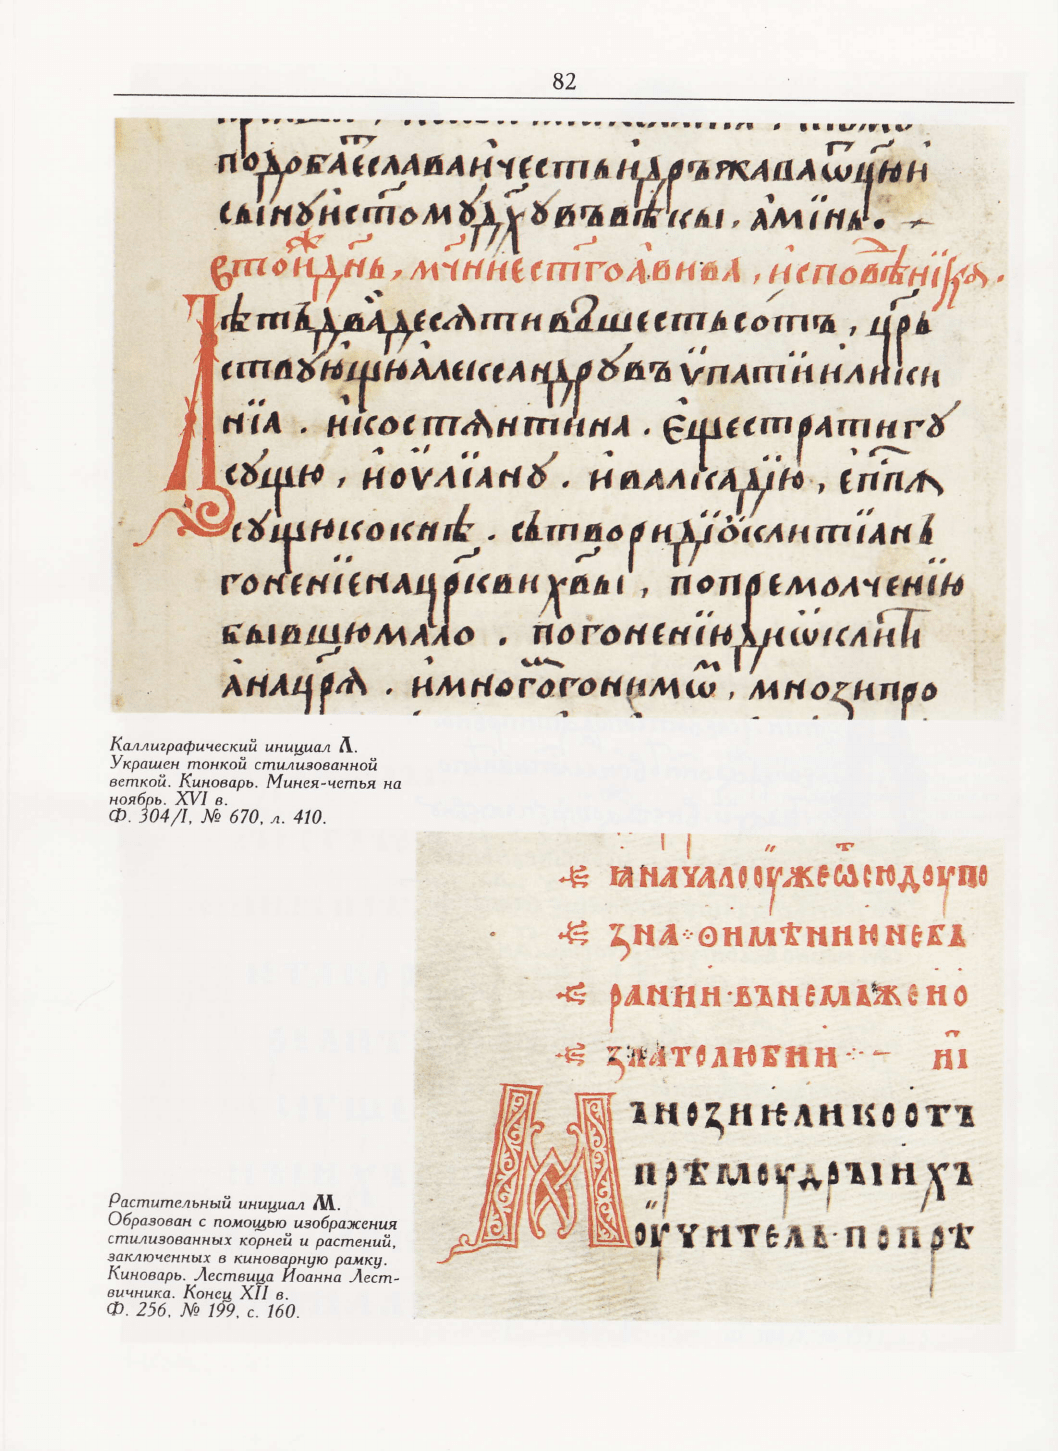 82
подобаеⷮславаичестьидръжаваѿц҃ѹи
сыинуист҃омудх҃увъвѣкы, аминь.
втоиⷤдн҃ь, мч҃ннестг҃оавива, исповѣⷣнїка.
Лѣтъдвадесѧтивꙿшестьсотъ, цр҃ь
ствующюалеѯандрувъѵпатїиилики
нїа. икостѧнтина. єщестратигу
сущю, иоулїану. ивалкадїю, еп҃пѧ
сущюкокнѣ. сътворидїоклитїанъ
гоненїенацр҃квихв҃ы, попремолченїю
бывшюмало. погоненїюдиѡклитї
анацр҃ѧ. имногоⷨгонимѡⷨ, мнозипро
Каллиграфический инициал Л.
Украшен тонкой стилизованной
веткой. Киноварь. Минея-четья на
ноябрь. XVI в.
Ф. 304/I, № 670, л. 410.
ꙗначалооужеѿсюдоупо
зна ⁘ ѳимѣниинеба
рании · вънемьжено
златолюбии ⁘ – н҃і
Мънозиѥликоотъ
прѣмоудрꙑихъ
оучитель · попрѣ
Растительный инициал М.
Образован с помощью изображения
стилизованных корней и растений,
заключенных в киноварную рамку.
Киноварь. Лествица Иоанна Лест-
вичника. Конец XII в.
Ф. 256, № 199, с. 160.